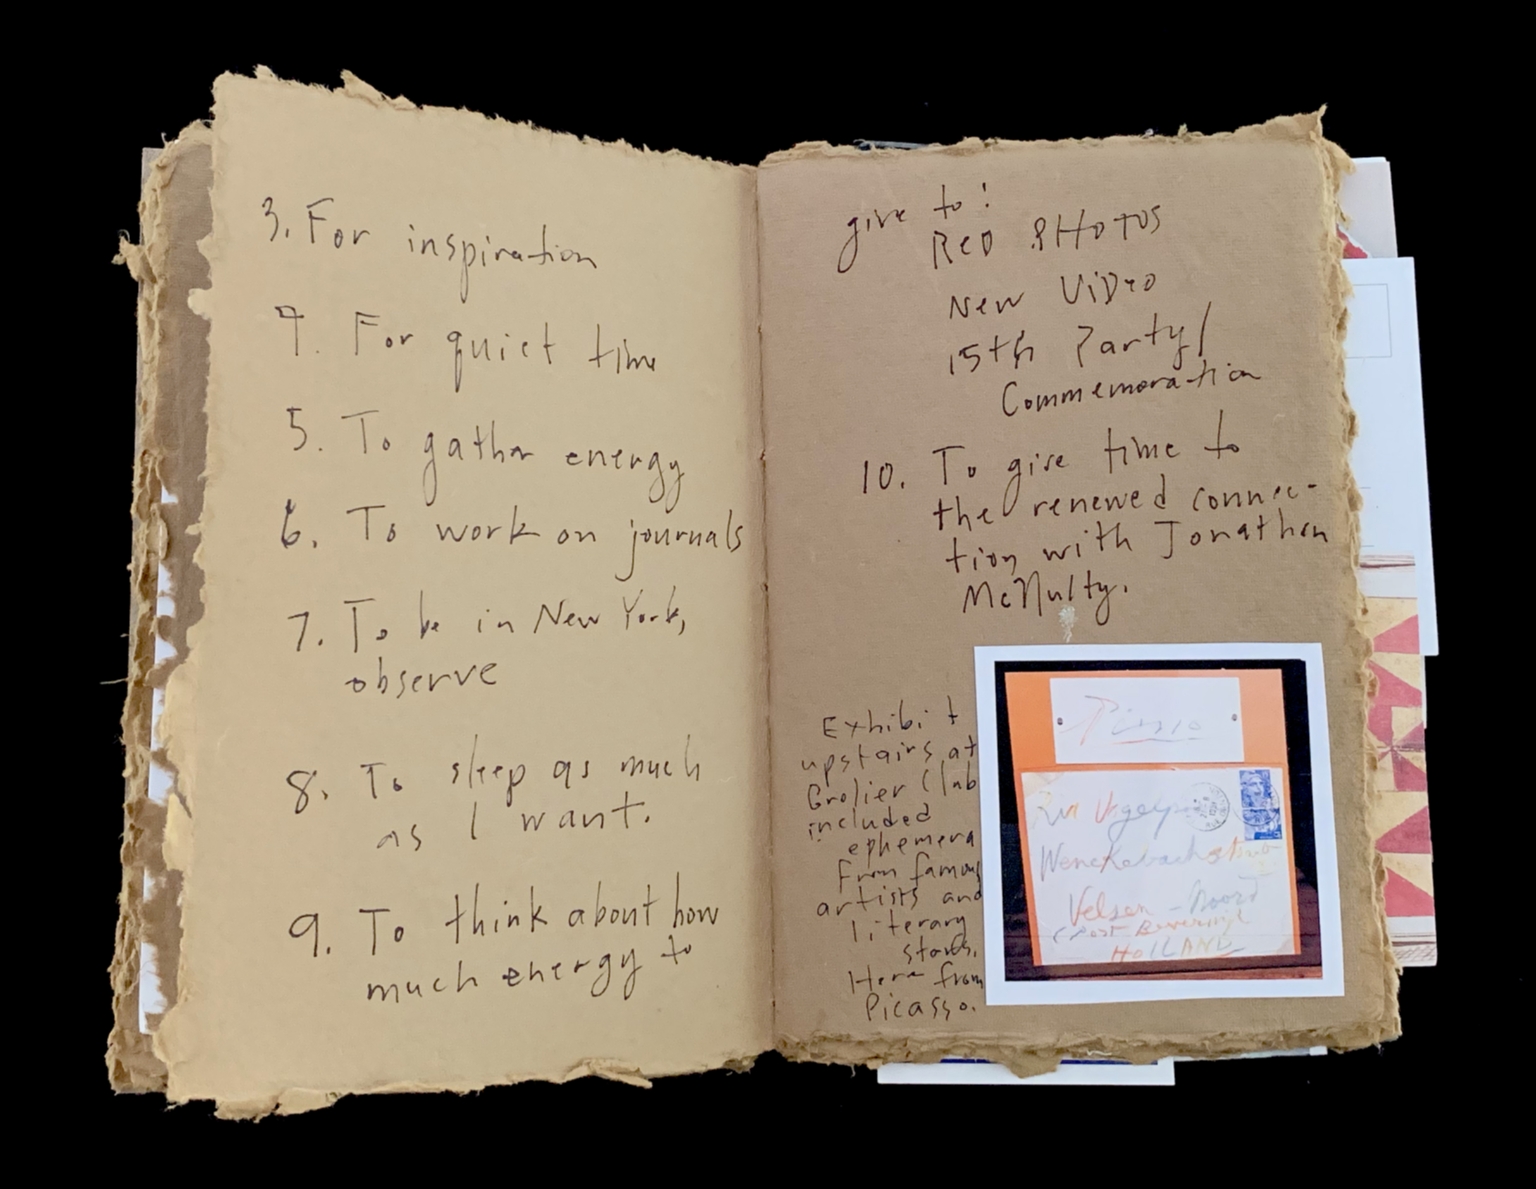 3. For inspiration
4. For quiet time
5. To gather energy
6. To work on journals
7. To be in New York,
observe
8. To sleep as much
as I want.
9. To think about how
much energy to
give to:
RED PHOTOS
New Video
15th Party/
Commemoration
10. To give time to
the renewed connec-
tion with Jonathon
McNulty.
Exhibit
upstairs at
Grolier Club
included
ephemera
From famous
artists and
literary
stars.
Here from
Picasso.
Picasso
Wenckebachstraat
Velsen - Noord
(Post Beverwijk
HOLLAND